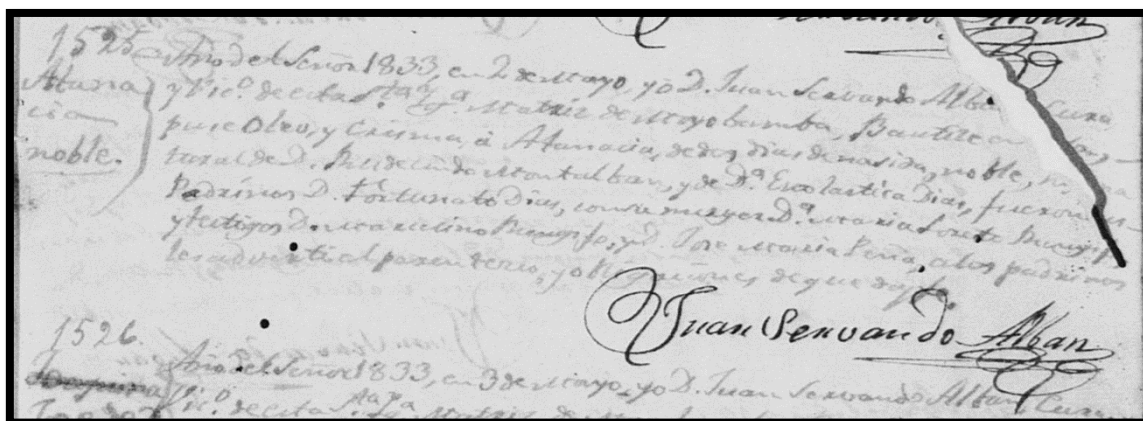 Juan Servando Alban
1525
Atana
cia
noble.
Año del Señor 1833, en 2 de Mayo, yo D. Juan Servando Alban Cura
y Vic.º de esta S.ta Yg.a Matriz de Moyobamba, Bautice
puse Oleo, y Crisma, à Atanacia, de dos dias de nasida, noble,
tural de D. Montalban, y de D.ª Escolastica Dias, fueron
Padrinos D. Fortunato Dias, con su muger D.ª Maria Loreto Rengifo
y testigos D. Marcelino Rengifo, y D. Jose Maria Peña, a los padrinos
les adverti el parentesco, y obligaciones de que doy fe.
Juan Servando Alban
1526.
Año del Señor 1833, en 3 de Mayo, yo D. Juan Servando Alban Cura
y Vic.º de esta S.ta Yg.a Matriz de